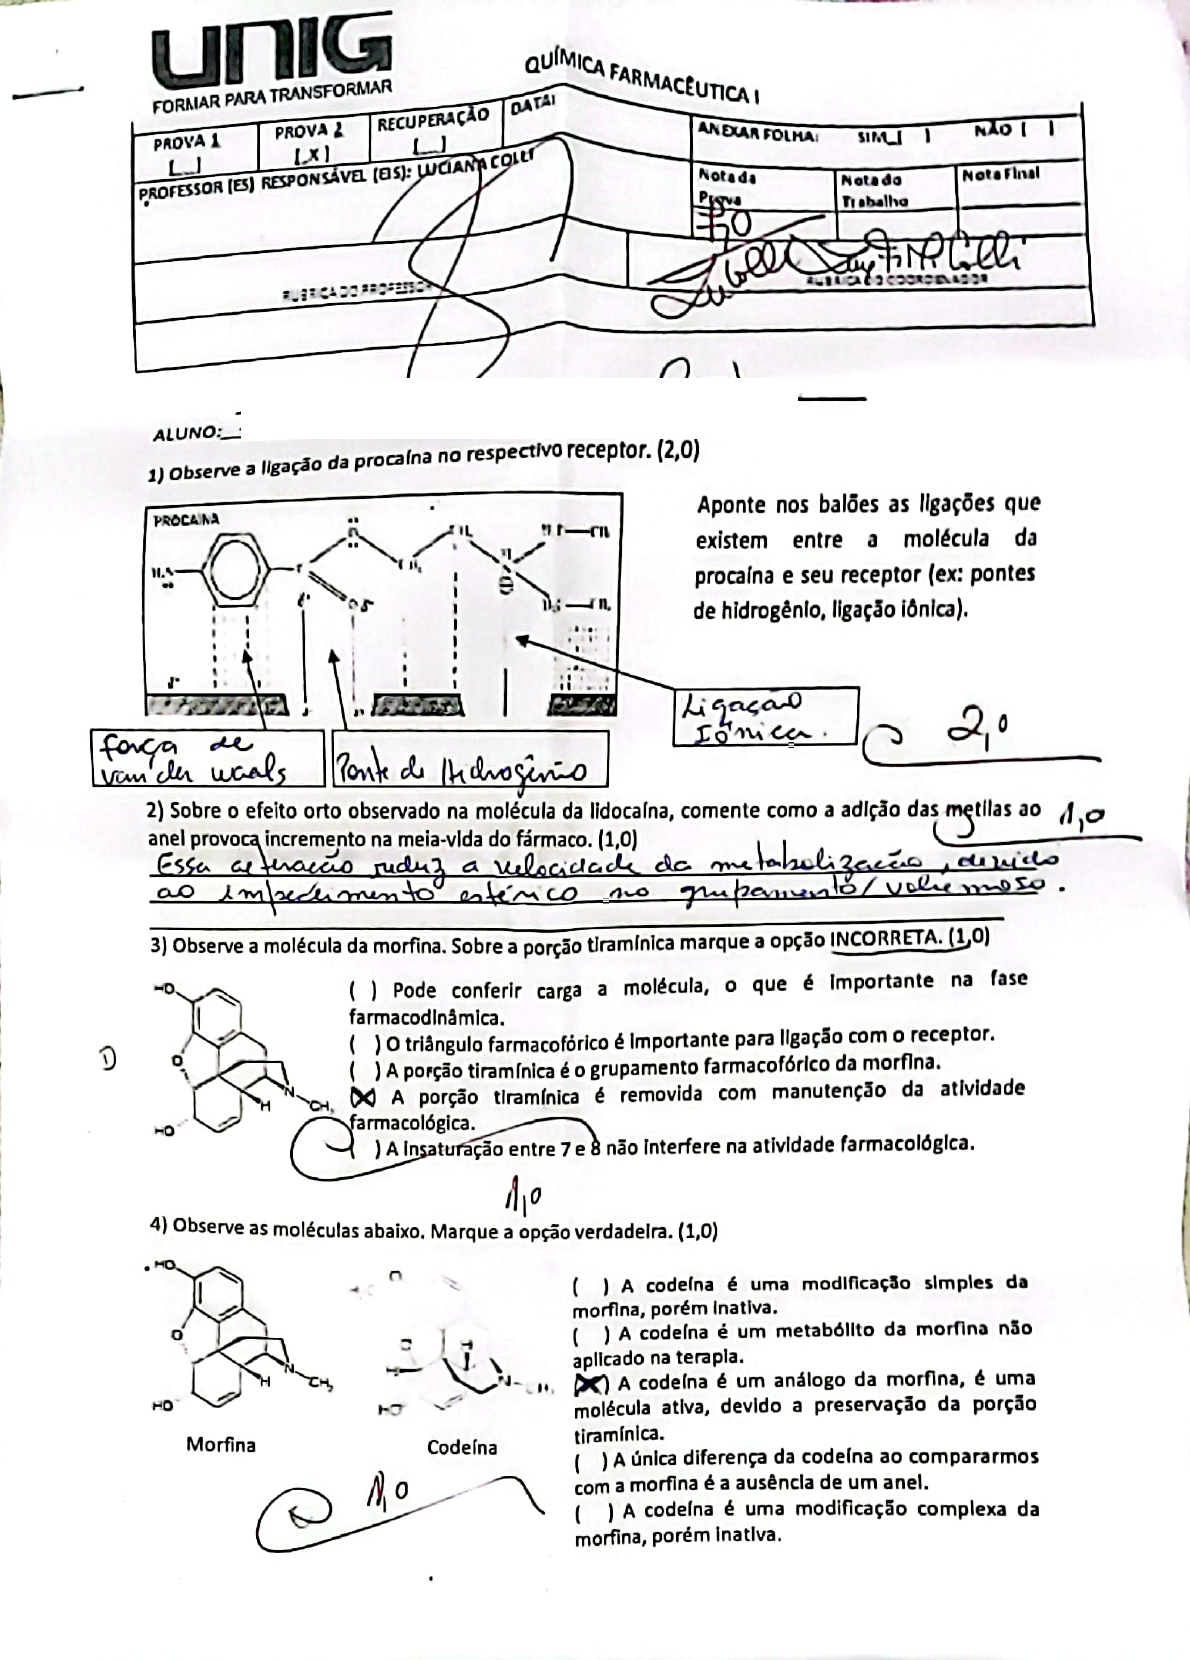 UNIG
FORMAR PARA TRANSFORMAR
QUÍMICA FARMACÊUTICA I
PROVA 1
PROVA 2
RECUPERAÇÃO
DATA:
ANEXAR FOLHA: SIM [ ] NÃO [ ]
[ ]
[ X ]
[ ]
PROFESSOR (ES) RESPONSÁVEL (EIS): LUCIANA COLLI
Nota da Prova
Nota do Trabalho
Nota Final
7,0
RUBRICA DO PROFESSOR
RUBRICA DO COORDENADOR
ALUNO:
1) Observe a ligação da procaína no respectivo receptor. (2,0)
PROCAINA
Aponte nos balões as ligações que
existem entre a molécula da
procaína e seu receptor (ex: pontes
de hidrogênio, ligação iônica).
Ligação
Iônica.
2,0
força de
van der waals
Ponte de Hidrogênio
2) Sobre o efeito orto observado na molécula da lidocaína, comente como a adição das metilas ao
anel provoca incremento na meia-vida do fármaco. (1,0)
1,0
Essa alteração reduz a velocidade da metabolização, devido
ao impedimento estérico no grupamento/volumoso.
3) Observe a molécula da morfina. Sobre a porção tiramínica marque a opção INCORRETA. (1,0)
HO
O
H
N
CH₃
HO
( ) Pode conferir carga a molécula, o que é importante na fase
farmacodinâmica.
( ) O triângulo farmacofórico é importante para ligação com o receptor.
( ) A porção tiramínica é o grupamento farmacofórico da morfina.
(X) A porção tiramínica é removida com manutenção da atividade
farmacológica.
) A insaturação entre 7 e 8 não interfere na atividade farmacológica.
1,0
4) Observe as moléculas abaixo. Marque a opção verdadeira. (1,0)
HO
O
H
N
CH₃
HO
Morfina
O
H
N
HO
Codeína
( ) A codeína é uma modificação simples da
morfina, porém inativa.
( ) A codeína é um metabólito da morfina não
aplicado na terapia.
(X) A codeína é um análogo da morfina, é uma
molécula ativa, devido a preservação da porção
tiramínica.
( ) A única diferença da codeína ao compararmos
com a morfina é a ausência de um anel.
( ) A codeína é uma modificação complexa da
morfina, porém inativa.
1,0